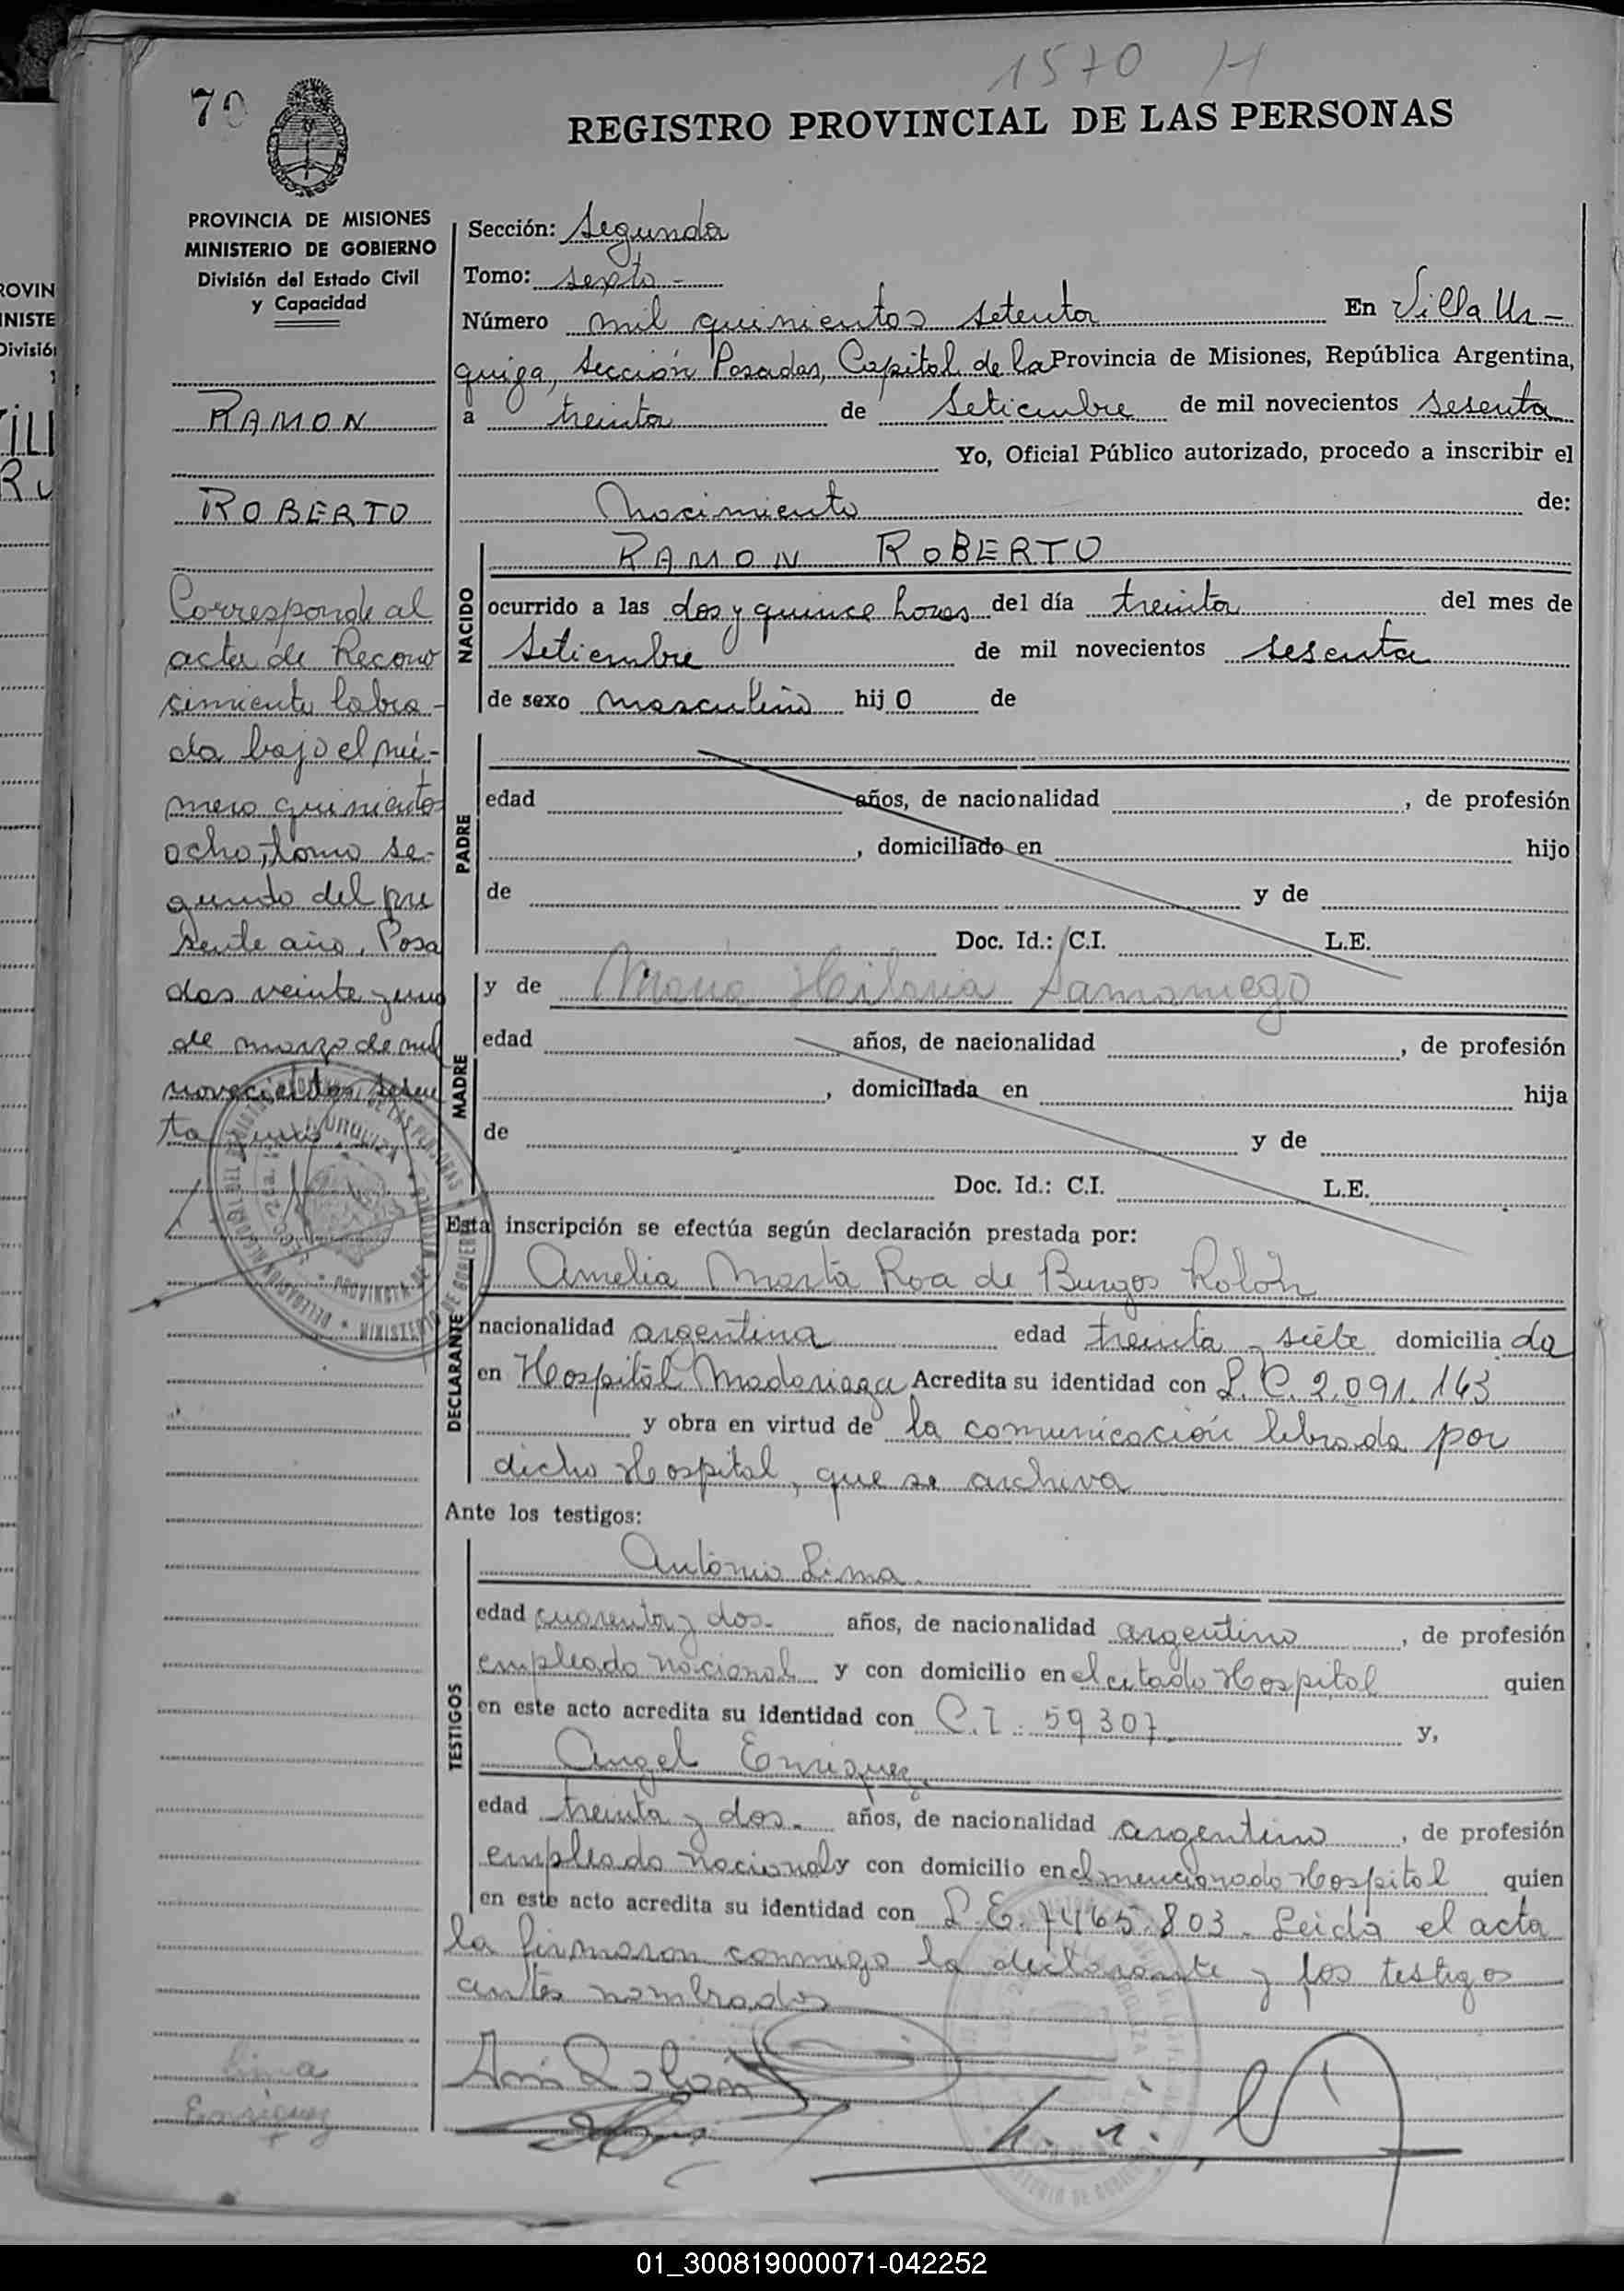 1570 H
70
REGISTRO PROVINCIAL DE LAS PERSONAS
PROVINCIA DE MISIONES
MINISTERIO DE GOBIERNO
División del Estado Civil
y Capacidad
RAMON
ROBERTO
Corresponde al
acta de Recono
cimiento labra-
da bajo el nú-
mero quiniento
ocho, tomo se-
gundo del pre
sente año, Posa
das veinte y uno
de marzo de mil
novecientos sesen
ta y uno
Sección: Segunda
Tomo: sexto -
Número mil quinientos setenta En Villa Ur-
quiza, Sección Posadas, Capital de la Provincia de Misiones, República Argentina,
a treinta de Setiembre de mil novecientos sesenta
Yo, Oficial Público autorizado, procedo a inscribir el
Nacimiento de:
NACIDO
RAMON ROBERTO
ocurrido a las dos y quince horas del día treinta del mes de
Setiembre de mil novecientos sesenta
de sexo masculino hijo de
PADRE
edad años, de nacionalidad , de profesión
, domiciliado en hijo
de y de
Doc. Id.: C.I. L.E.
MADRE
y de Maria Hilaria Samaniego
edad años, de nacionalidad , de profesión
, domiciliada en hija
de y de
Doc. Id.: C.I. L.E.
Esta inscripción se efectúa según declaración prestada por:
DECLARANTE
Amelia Marta Roa de Burgos Rolón
nacionalidad argentina edad treinta y siete domiciliada
en Hospital Madariaga Acredita su identidad con L.C. 2.091.163
y obra en virtud de la comunicación librada por
dicho Hospital, que se archiva
Ante los testigos:
TESTIGOS
Antonio Lima
edad cuarenta y dos- años, de nacionalidad argentino , de profesión
empleado nacional y con domicilio en el citado Hospital quien
en este acto acredita su identidad con C.I. 59307. y,
Angel Enriquez
edad treinta y dos- años, de nacionalidad argentino , de profesión
empleado nacional y con domicilio en el mencionado Hospital quien
en este acto acredita su identidad con L.E. 7465.803. Leida el acta
la firmaron conmigo la declarante y los testigos
antes nombrados
Lima
Enriquez
01_300819000071-042252